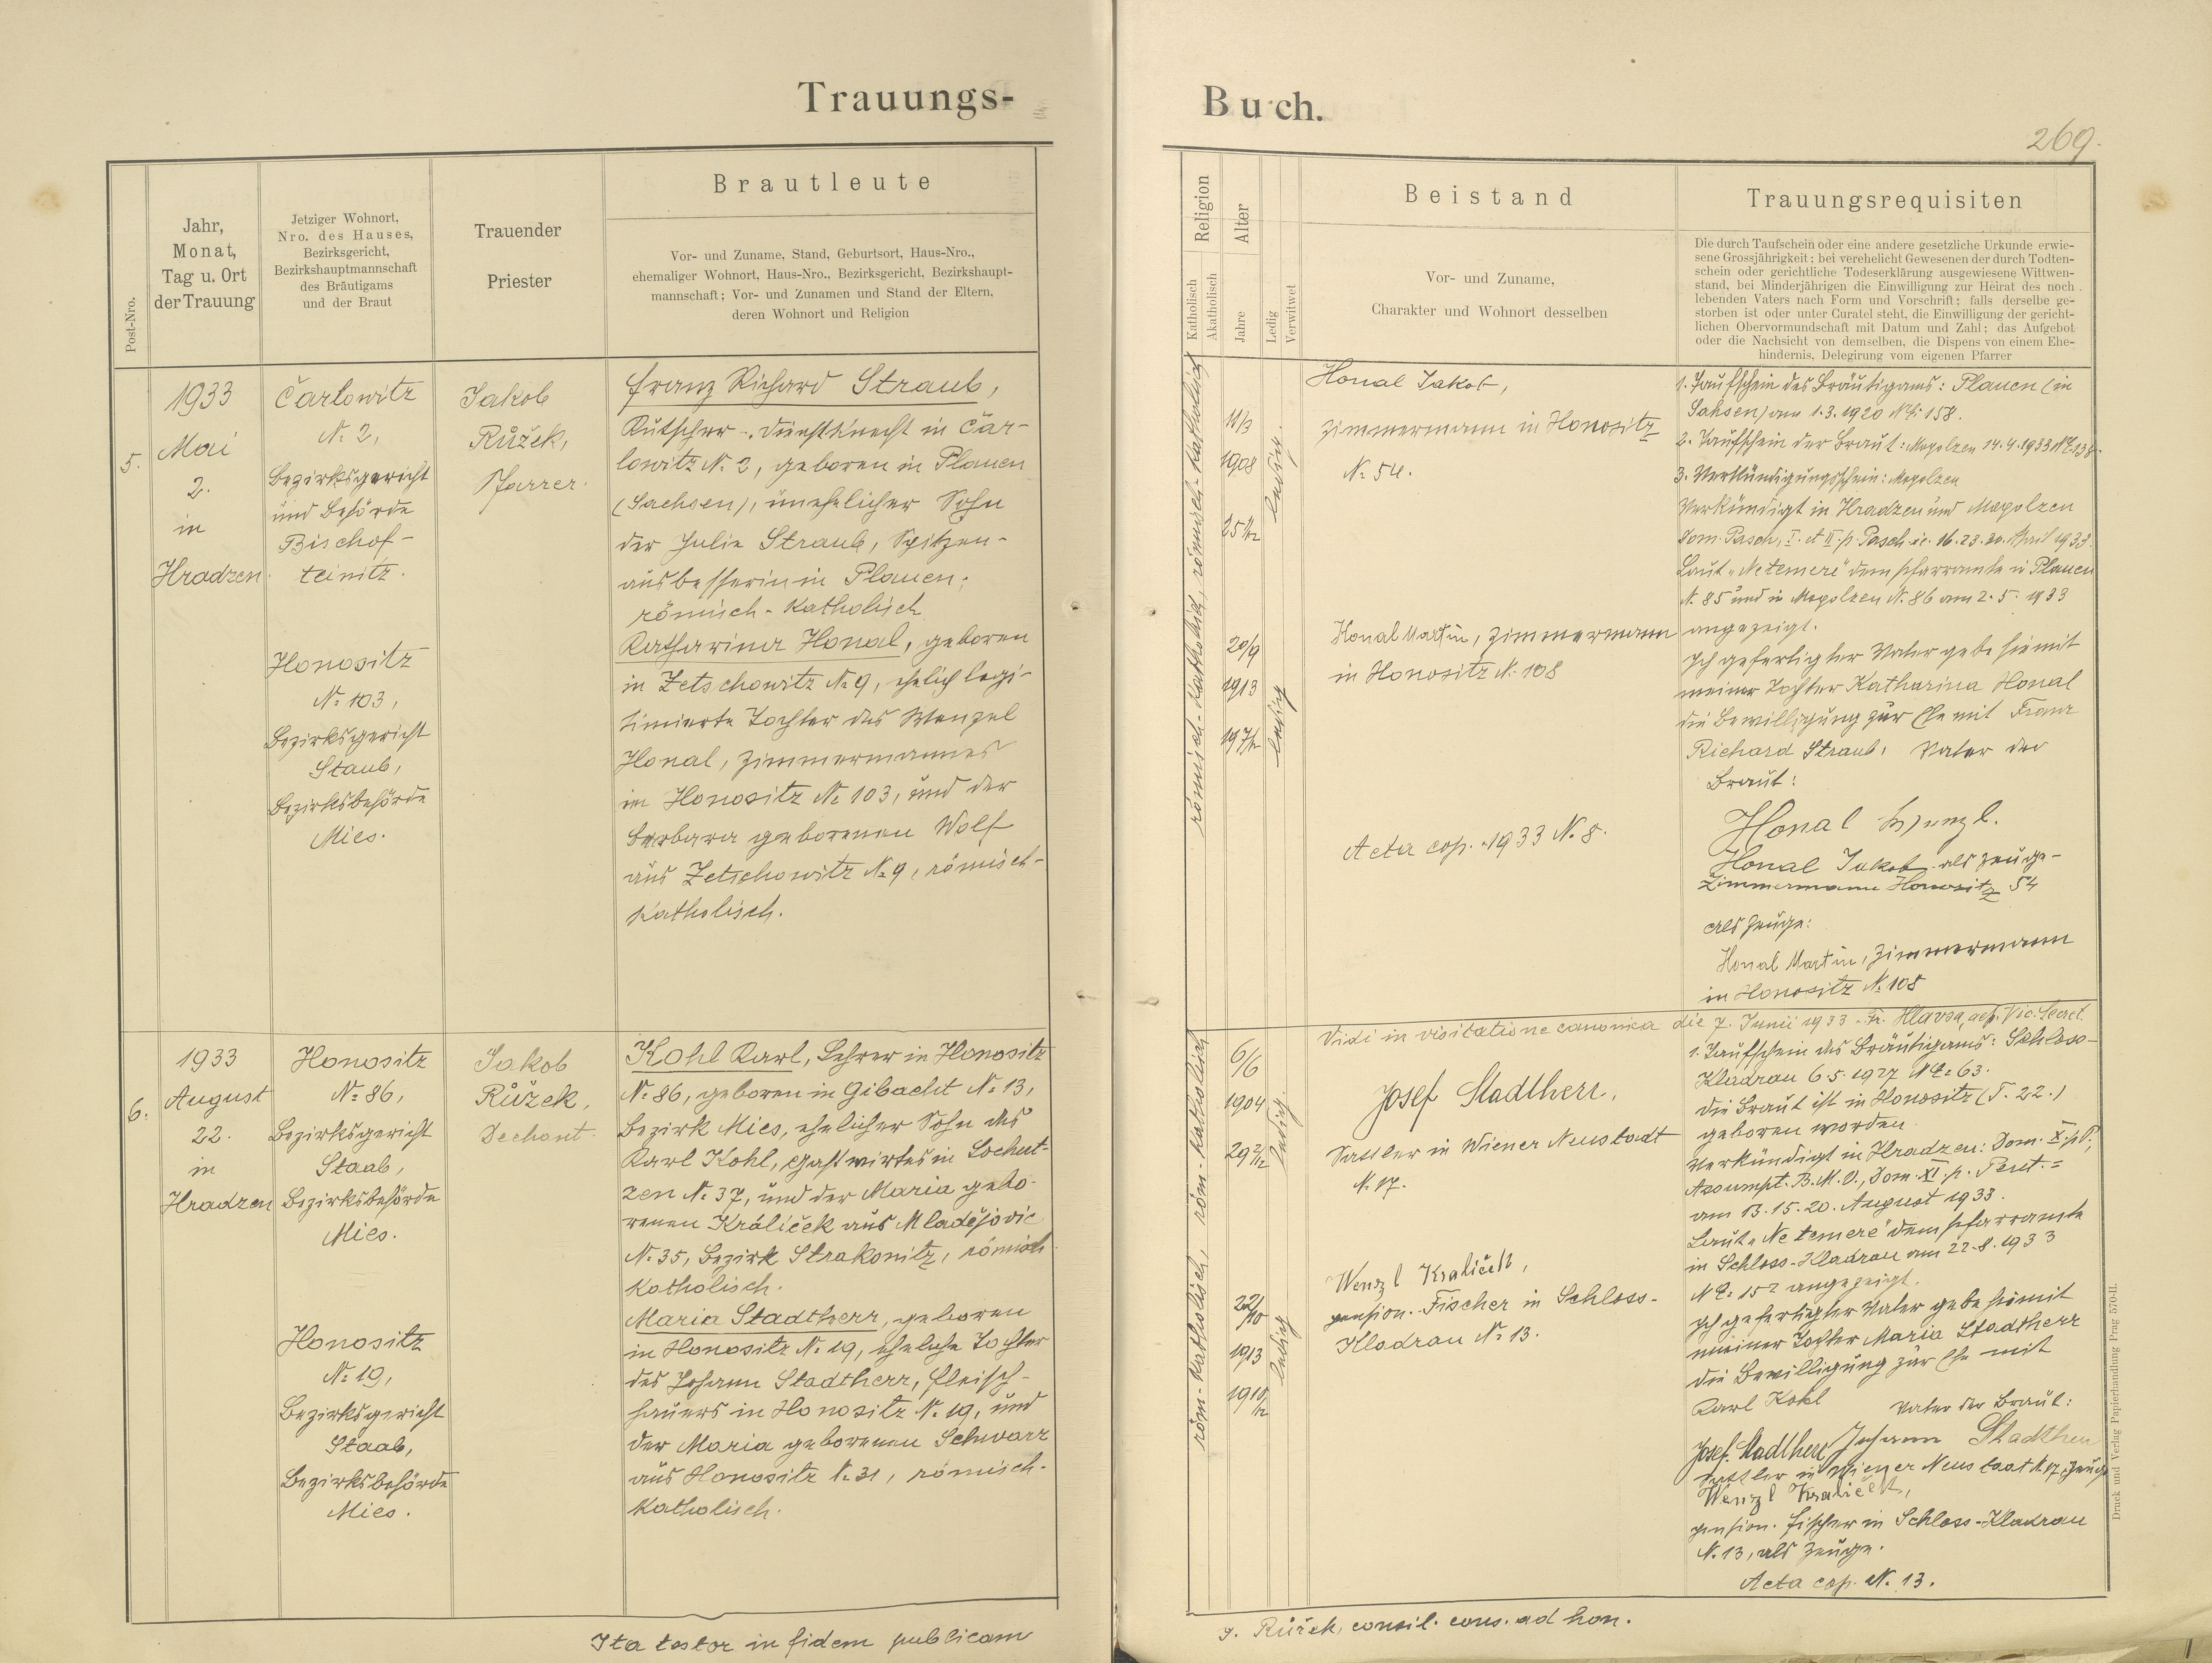 Trauungs-
Post-Nro.
Jahr,
Monat,
Tag u. Ort
der Trauung
Jetziger Wohnort,
Nro. des Hauses,
Bezirksgericht,
Bezirkshauptmannschaft
des Bräutigams
und der Braut
Trauender
Priester
Brautleute
Vor- und Zuname, Stand, Geburtsort, Haus-Nro.,
ehemaliger Wohnort, Haus-Nro., Bezirksgericht, Bezirkshaupt-
mannschaft; Vor- und Zunamen und Stand der Eltern,
deren Wohnort und Religion
5.
1933
Mai
2.
in
Hradzen.
Čarlowitz
No 2,
Bezirksgericht
und Behörde
Bischof-
teinitz.
Honositz
No 103,
Bezirksgericht
Staab,
Bezirksbehörde
Mies.
Jakob
Růžek,
Pfarrer.
Franz Richard Straub,
Kutscher-. Dienstknecht in Čar-
lowitz No 2, geboren in Plauen
(Sachsen), unehelicher Sohn
der Julie Straub, Spitzen-
ausbesserin in Plauen;
römisch-katholisch
Katharina Honal, geboren
in Zetschowitz No 9, ehelich legi-
timierte Tochter des Wenzel
Honal, Zimmermannes
in Honositz No 103, und der
Barbara geborenen Wolf
aus Zetschowitz No 9, römisch-
katholisch.
6.
1933
August
22.
in
Hradzen
Honositz
No 86,
Bezirksgericht
Staab,
Bezirksbehörde
Mies.
Honositz
No 19,
Bezirksgericht
Staab,
Bezirksbehörde
Mies.
Jakob
Růžek,
Dechant.
Kohl Karl, Lehrer in Honositz
No 86, geboren in Gibacht No 13,
Bezirk Mies, ehelicher Sohn des
Karl Kohl, Gastwirtes in Lochut-
zen No 37, und der Maria gebo-
renen Králiček aus Mladějovic
No 35, Bezirk Strakonitz, römisch
katholisch.
Maria Stadtherr, geboren
in Honositz No 19, eheliche Tochter
des Johann Stadtherr, Fleisch-
hauers in Honositz No 19, und
der Maria geborenen Schwarz
aus Honositz No 31, römisch-
katholisch.
Ita testor in fidem publicam
Buch.
269.
Religion
Katholisch
Akatholisch
Alter
Jahre
Ledig
Verwitwet
Beistand
Vor- und Zuname,
Charakter und Wohnort desselben
Trauungsrequisiten
Die durch Taufschein oder eine andere gesetzliche Urkunde erwie-
sene Grossjährigkeit; bei verehelicht Gewesenen der durch Todten-
schein oder gerichtliche Todeserklärung ausgewiesene Wittwen-
stand, bei Minderjährigen die Einwilligung zur Heirat des noch
lebenden Vaters nach Form und Vorschrift; falls derselbe ge-
storben ist oder unter Curatel steht, die Einwilligung der gericht-
lichen Obervormundschaft mit Datum und Zahl; das Aufgebot
oder die Nachsicht von demselben, die Dispens von einem Ehe-
hindernis, Delegirung vom eigenen Pfarrer
römisch-katholisch, römisch-katholisch
11/3
1908
25 1/12
ledig.
20/9
1913
19 7/12
ledig
Honal Jakob,
Zimmermann in Honositz
No 54.
Honal Martin, Zimmermann
in Honositz No 108
Acta cop. 1933 No 8.
1. Taufschein des Bräutigams: Plauen (in
Sahsen) am 1.3.1920 No E: 158.
2. Taufschein der Braut: Mogolzen 14.4.1933 No E 138.
3. Verkündigungsschein: Mogolzen
Verkündigt in Hradzen und Mogolzen
Dom. Pasch, I. et II. p. Pasch. i.e. 16.23.30. April 1933.
Laut "Ne temere" dem Pfarramte in Plauen
No 85 und in Mogolzen No 86 am 2.5.1933
angezeigt.
Ich gefertigter Vater gebe hiemit
meiner Tochter Katharina Honal
die Bewilligung zur Ehe mit Franz
Richard Straub. Vater der
Braut:
Honal Wenzl.
Honal Jakob als Zeuge-
Zimmermann Honositz 54
als Zeuge:
Honal Martin, Zimmermann
in Honositz No 108
Vidi in visitatione canonica die 7. Junii 1933. Fr. Hlavsa, aep. Vic. Secret.
röm-katholisch, röm-katholisch
6/6
1904
29 2/12
ledig
22/10
1913
19 10/12
ledig
Josef Stadtherr,
Sattler in Wiener Neustadt
No 17.
Wenzl Kraliček,
pension. Fischer in Schloss-
Kladrau No 13.
1. Taufschein des Bräutigams: Schloss-
Kladrau 6.5.1927 No E: 63.
Die Braut ist in Honositz (T. 22.)
geboren worden
Verkündigt in Hradzen: Dom. X. p. P.,
Assumpt. B.M.V., Dom. XI. p. Pent. =
am 13.15.20. August 1933.
Laut "Ne temere" dem Pfarramte
in Schloss-Kladrau am 22.8.1933
No E: 152 angezeigt.
Ich gefertigter Vater gebe hiemit
meiner Tochter Maria Stadtherr
die Bewilligung zur Ehe mit
Karl Kohl Vater der Braut:
Josef Stadtherr Johann Stadtherr
Sattler in Wiener Neustadt No 17, Zeuge
Wenzl Kraliček,
pension. Fischer in Schloss-Kladrau
No 13, als Zeuge.
Acta cop. No 13.
J. Růžek, consil. cons. ad hon.
Druck und Verlag Papierhandlung Prag 570-II.